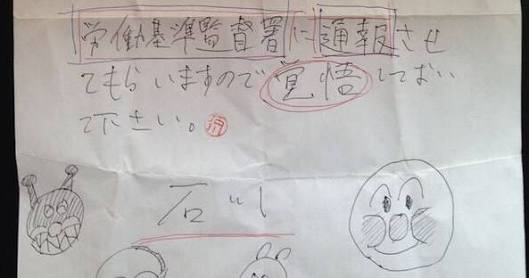 労働基準監督署に通報させ
てもらいますので覚悟しておい
て下さい。
石川